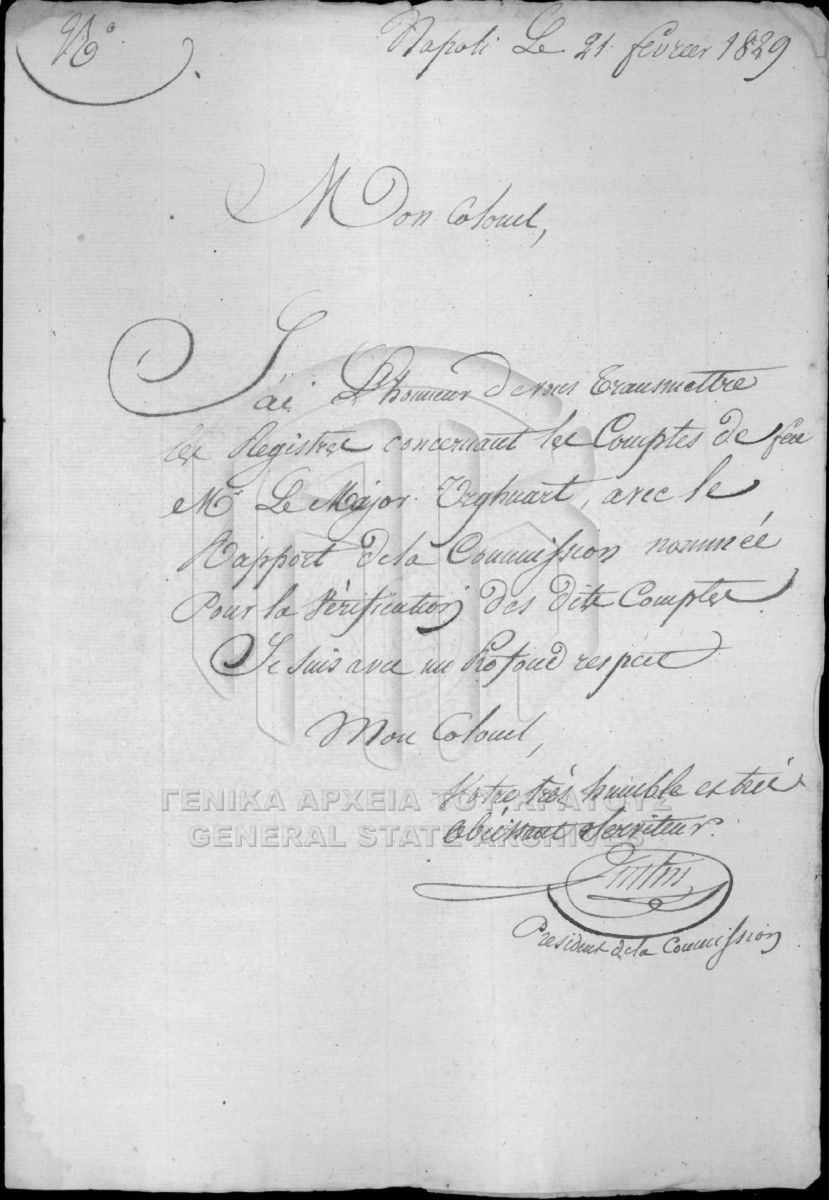 N°.
Napoli Le 21 fevrier 1829
Mon Colonel,
J'ai L'honneur de vous Transmettre
les Registres concernant les Comptes de feu
Mr Le Major Urghuart, avec le
Rapport de la Commission nommée
Pour la Vérification des dits Comptes
Je suis avec un Profond respect
Mon Colonel,
Votre très humble et très
Obéissant Serviteur.
President de la Commission
ΓΕΝΙΚΑ ΑΡΧΕΙΑ ΤΟΥ ΚΡΑΤΟΥΣ
GENERAL STATE ARCHIVES